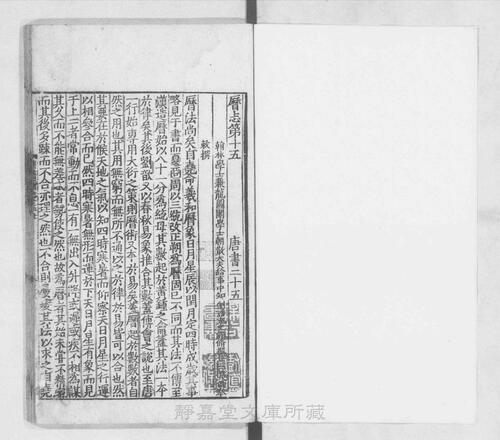 曆志第十五　唐書二十五
翰林學士兼龍圖閣學士朝散大夫給事中知
敕撰
曆法尚矣自堯命羲和曆象日月星辰以閏月定四時成歲其事
略見于書而夏商周以三統改正朔為曆固已不同而其法不傳至
漢造曆始以八十一分為統母其數起於黃鍾之龠蓋其法一本
於律矣其後劉歆又以春秋易象推合其數蓋傅會之說也至唐
一行始專用大衍之策則曆術又本於易矣蓋曆起於數數者自
然之用也其用無窮而無所不通以之於律於易皆可以合也然
其要在於候天地之氣以知四時寒暑而仰察天日月星之行運
以相參合而已然四時寒暑無形而運於下天日月星有象而見
于上二者常動而不息一有一無出入升降或遲或疾不相為謀
其久而不能無差忒者勢使之然也故為曆者其始未嘗不精密
而其後多疎而不合亦理之然也不合則屢變其法以求之自堯
靜嘉堂文庫所藏